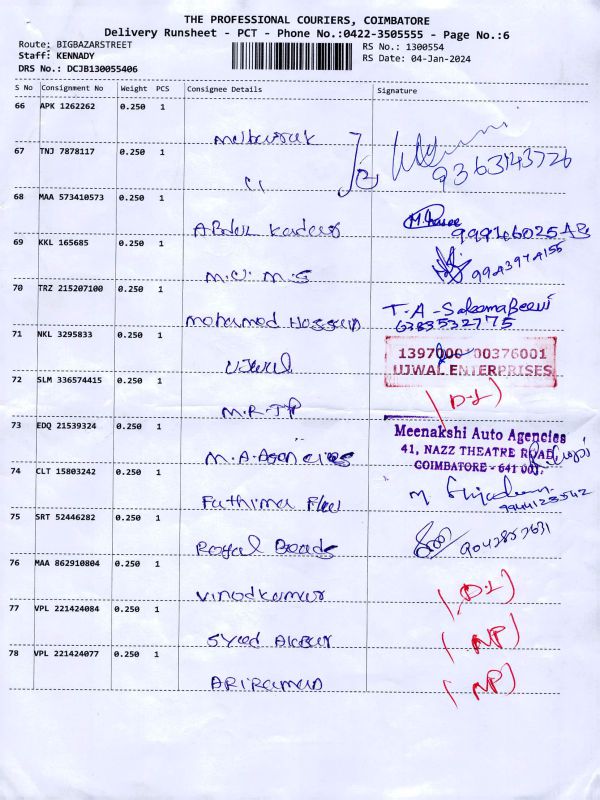 THE PROFESSIONAL COURIERS, COIMBATORE
Delivery Runsheet - PCT - Phone No.:0422-3505555 - Page No.:6
Route: BIGBAZARSTREET
RS No.: 1300554
Staff: KENNADY
RS Date: 04-Jan-2024
DRS No.: DCJB130055406
S No Consignment No Weight PCS Consignee Details Signature
66 APK 1262262 0.250 1
Mubarak
67 TNJ 7878117 0.250 1
9363143726
68 MAA 573410573 0.250 1
Abdul Kader
69 KKL 165685 0.250 1
M.U.M.S
9943974155
70 TRZ 215207100 0.250 1
Mohamed Hassan T.A-Saleema Beevi
6383532775
71 NKL 3295833 0.250 1
Ujwal
1397000 00376001
UJWAL ENTERPRISES
72 SLM 336574415 0.250 1
M.R.TP (D-L)
73 EDQ 21539324 0.250 1
M.A.Agencies
Meenakshi Auto Agencies
41, NAZZ THEATRE ROAD,
COIMBATORE - 641 001.
74 CLT 15803242 0.250 1
Fathima
9944123542
75 SRT 52446282 0.250 1
Royal Beads 9042857631
76 MAA 862910804 0.250 1
Vinodkumar (D-L)
77 VPL 221424084 0.250 1
Syed Akbar (NP)
78 VPL 221424077 0.250 1
ARIRAMAN (NP)